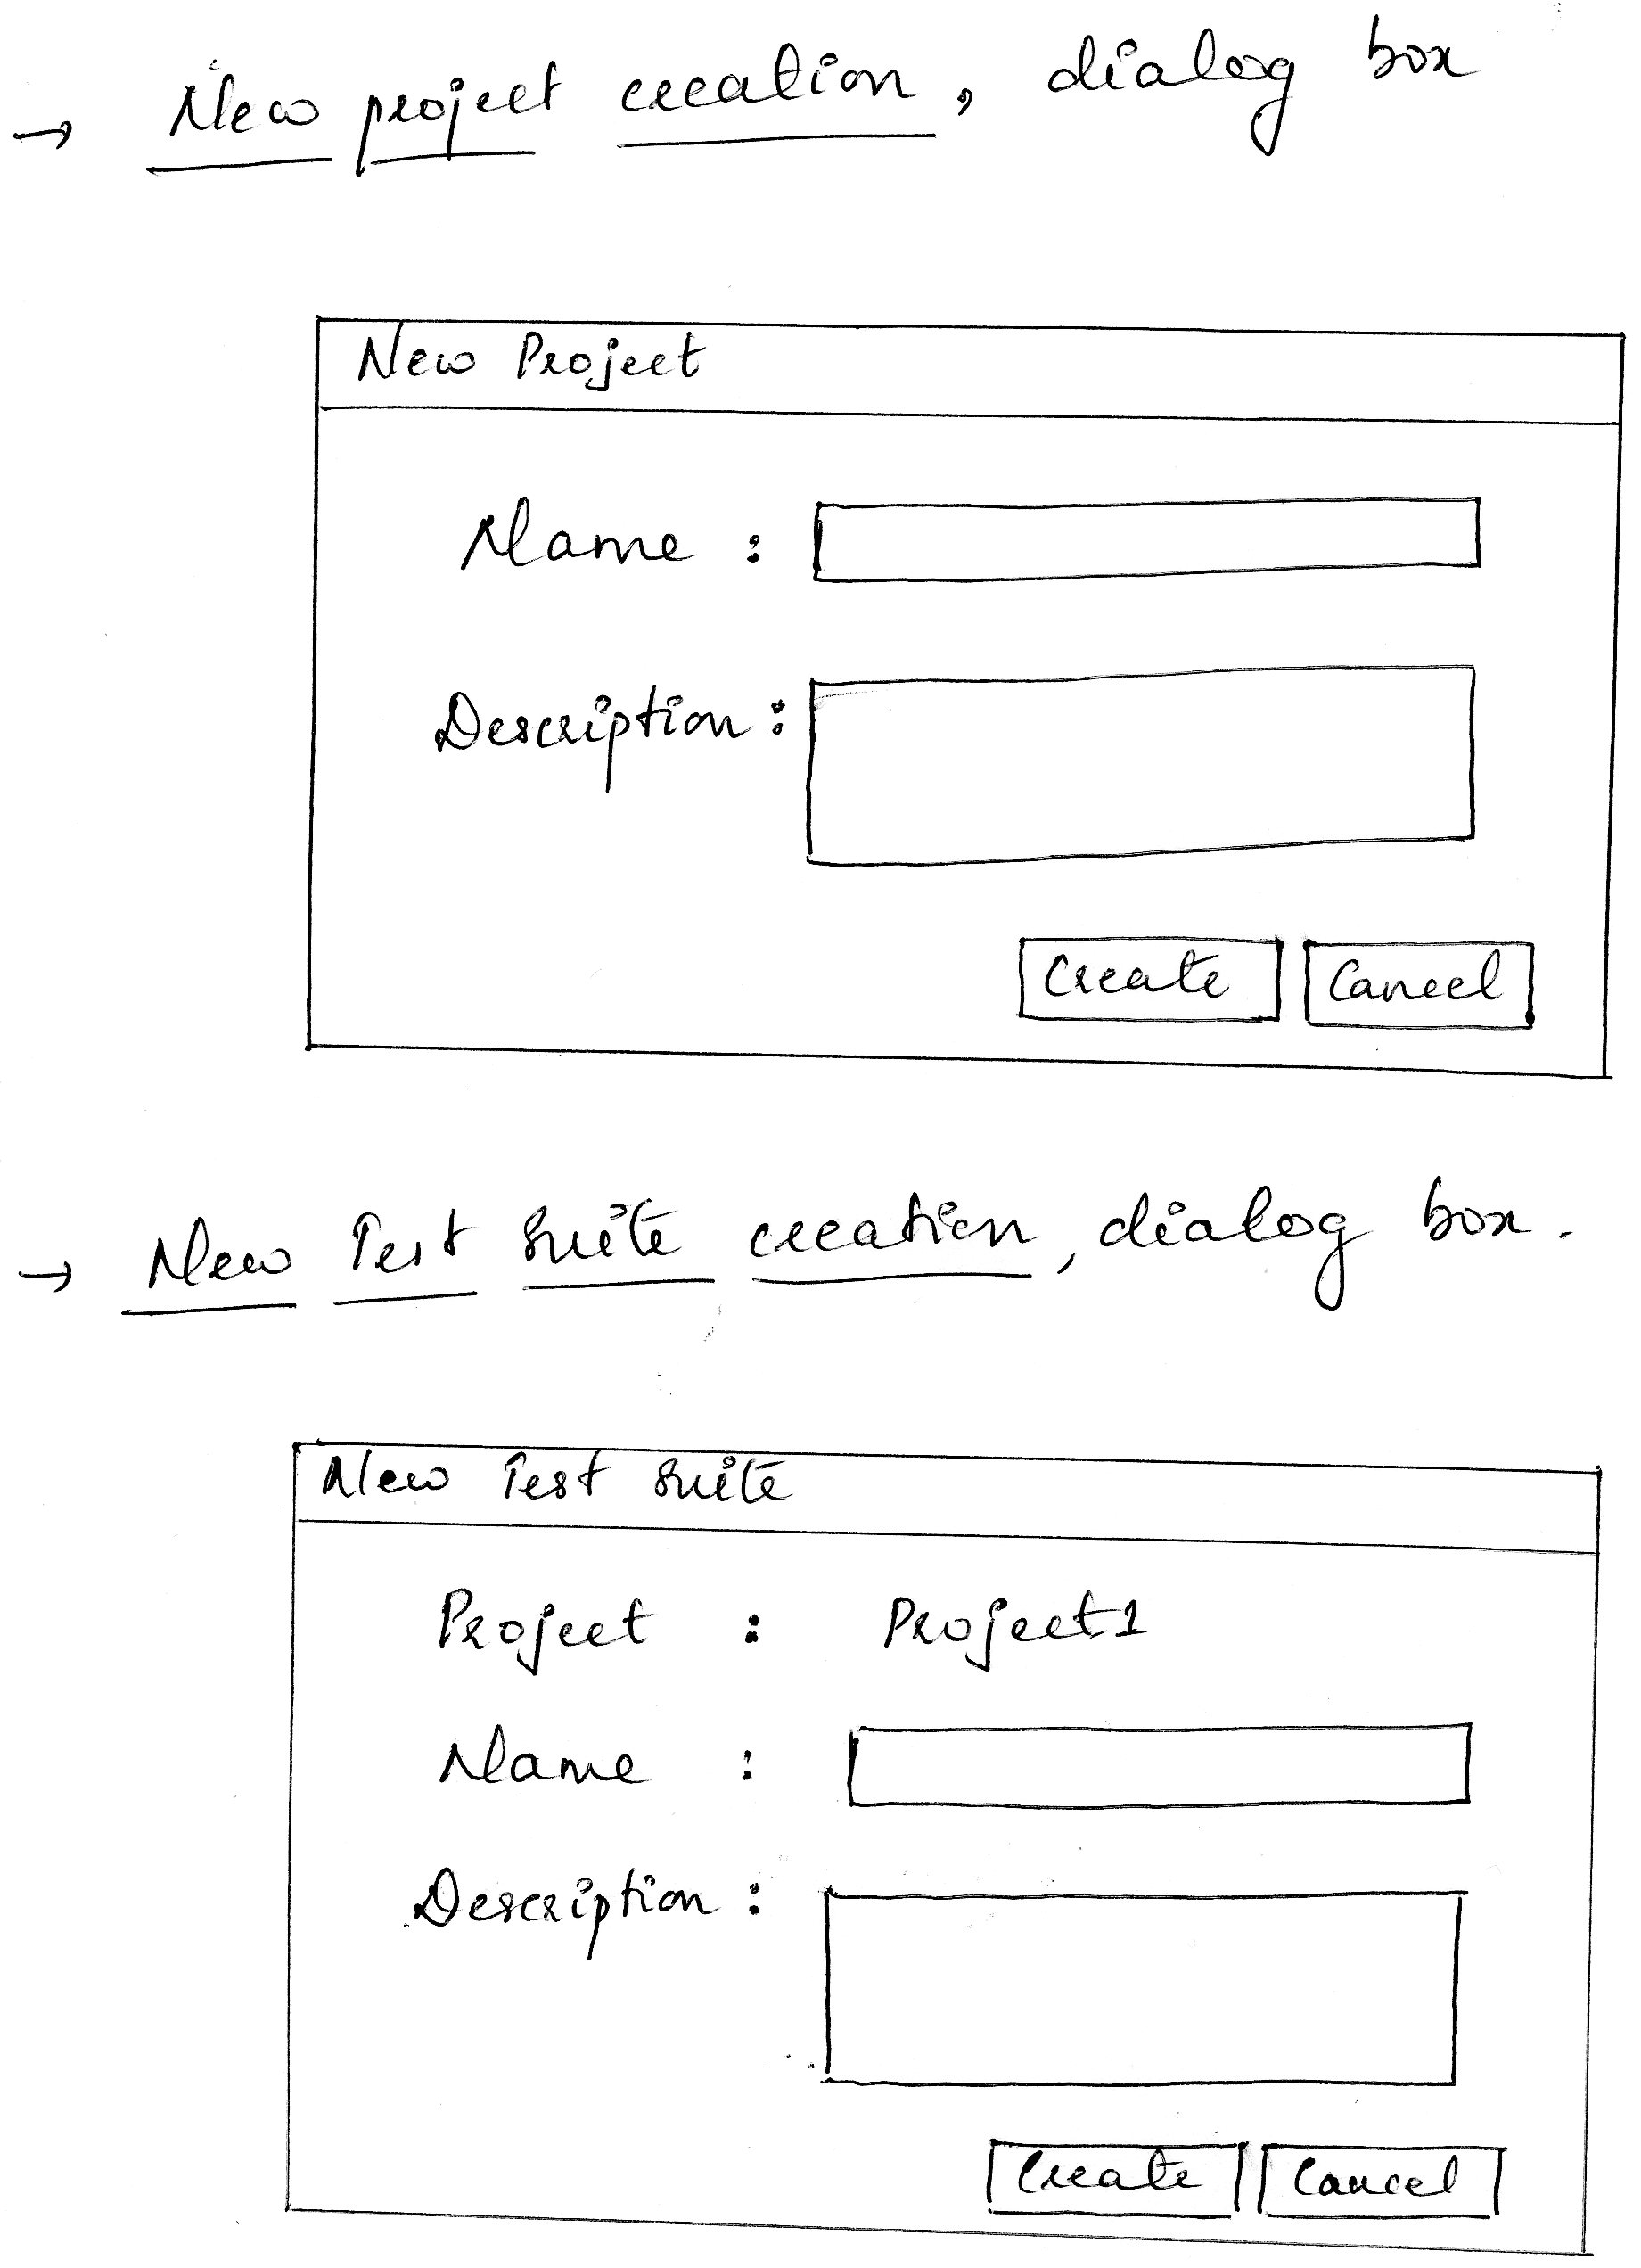 → New project creation, dialog box
New Project
Name :
Description :
Create Cancel
→ New Test Suite creation, dialog box.
New Test Suite
Project : Project1
Name :
Description :
Create Cancel